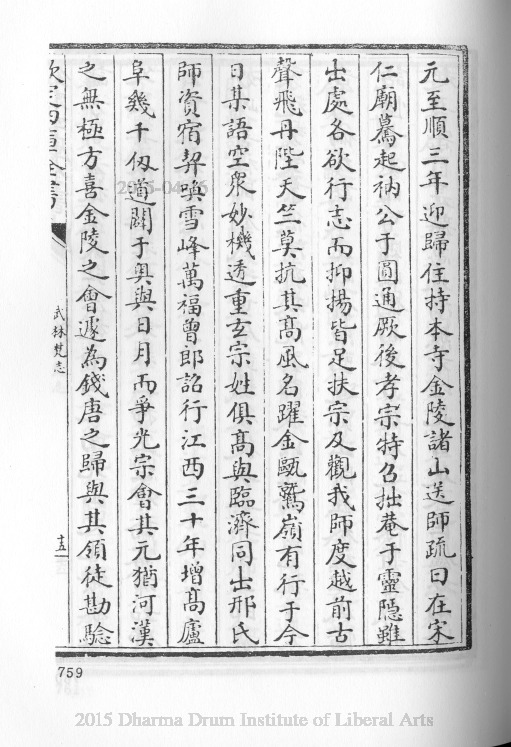 元至順三年迎歸住持本寺金陵諸山送師疏曰在宋
仁廟驀起衲公于圓通厥後孝宗特召拙菴于靈隠雖
出處各欲行志而抑揚皆足扶宗及觀我師度越前古
聲飛丹陛天竺莫抗其髙風名躍金甌鷲嶺有行于今
日某語空衆妙機透重玄宗姓俱髙與臨濟同出邢氏
師資宿契喚雪峰萬福曾郎詔行江西三十年增髙廬
阜幾千仭道闢于奥與日月而爭光宗會其元猶河漢
之無極方喜金陵之會遽為錢唐之歸與其領徒勘驗
欽定四庫全書
武林梵志
十五
759
2015 Dharma Drum Institute of Liberal Arts